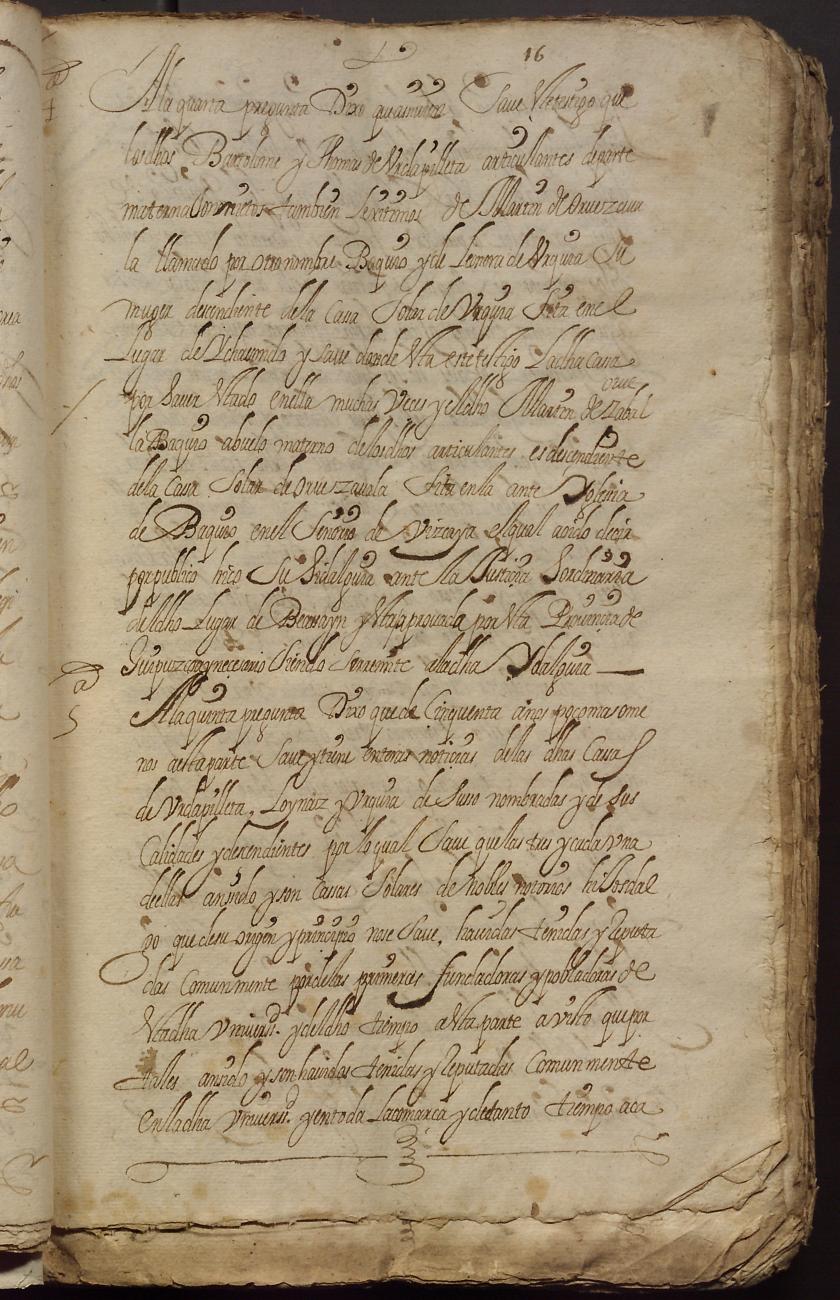 16
A la quarta pregunta Dixo que asimismo Save este testigo que
los dhos Bartolome y Thomas de Urdapilleta articulantes de parte
materna son nietos tambien lexitimos de Martin de Oruezaua
la llamado por otro nombre Baquio y de Leonora de Urquia su
muger descendiente de la Casa Solar de Urquia sita en el
Lugar de Ychasondo y save donde esta este testigo La dha Casa
por haver estado en ella muchas Veces y el dho Martin de orue zabal
la Baquio abuelo materno de los dhos articulantes es descendiente
de la Casa Solar de Oruezauala sita en la ante Yglesia
de Baquio en el Senorio de Vizcaya el qual a oido decir
por publico hico su hidalguia ante la Justicia hordinaria
del dho Lugar de Berrayn y esta aprovada por esta Provincia de
Guipuzcoa y necesario siendo se rremite a la dha Ydalguia
a
4
a
5
A la quinta pregunta Dixo que de Cinquenta años poco mas o me
nos a esta parte Save y tiene enteras noticias de las dhas Casas
de Urdapilleta, Loynaz y Urquia de suso nombradas y de sus
Calidades y descendientes por lo qual Save que las tres y cada una
dellas an sido y son Casas Solares de nobles notorios hijosdal
go que de su origen y principio no se Save, havidas tenidas y Reputa
das Comunmente por de las primeras fundadoras y pobladoras de
Esta dha Universd. y del dho tiempo a esta parte a visto que por
tales an sido y son havidas tenidas y Reputadas Comunmente
En la dha Universd. y en toda La comarca y de tanto tiempo aca